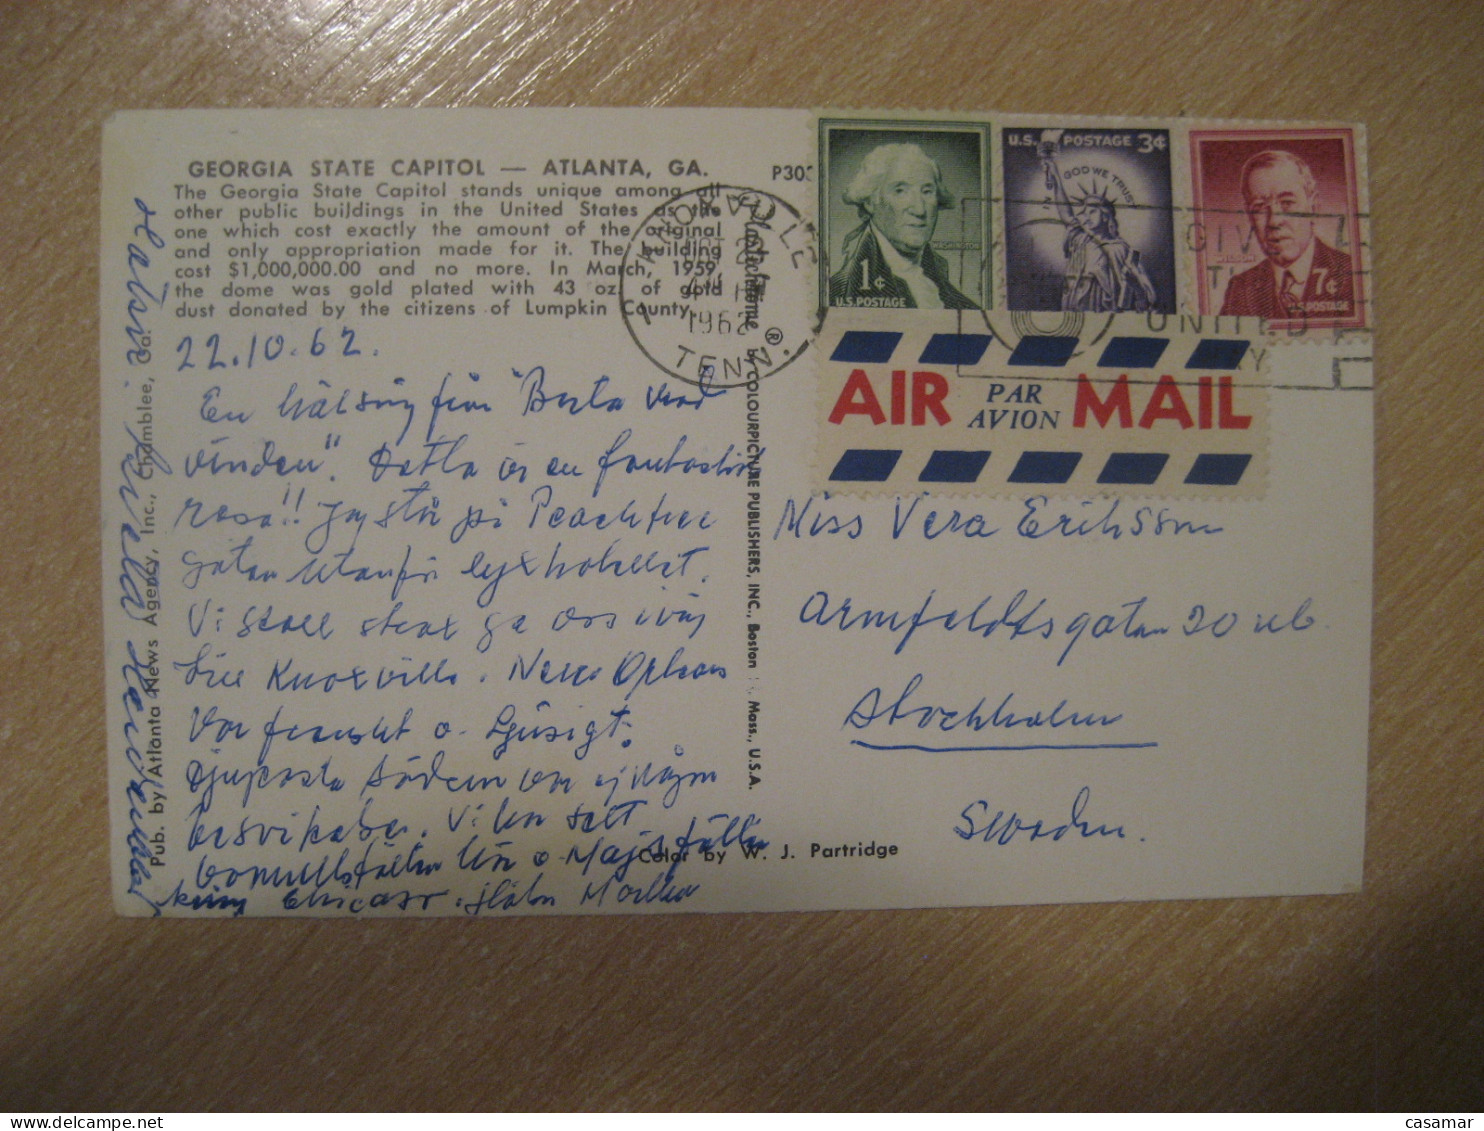 GEORGIA STATE CAPITOL — ATLANTA, GA.
The Georgia State Capitol stands unique among all
other public buildings in the United States as the
one which cost exactly the amount of the original
and only appropriation made for it. The building
cost $1,000,000.00 and no more. In March, 1959,
the dome was gold plated with 43 oz. of gold
dust donated by the citizens of Lumpkin County.
22.10.62.
En hälsning från "Borta med
vinden". Detta är en fantastisk
resa!! Jag står på Peachtree
gatan utanför lyxhotellet.
Vi skall strax ge oss iväg
till Knoxville. New Orleans
var franskt o. tjusigt.
Djupaste Södern var ej någon
besvikelse. Vi har sett
bomullsfälten här o Majsfälten
kring Chicago.
Pub. by Atlanta News Agency, Inc., Chamblee, Ga.
Plastichrome ® by COLOURPICTURE PUBLISHERS, INC., Boston Mass., U.S.A.
Color by W. J. Partridge
P303
KNOXVILLE
1962
TENN.
1¢
WASHINGTON
U.S. POSTAGE
U.S. POSTAGE 3¢
IN GOD WE TRUST
7¢
U.S. POSTAGE
GIVE
UNITED
WAY
AIR PAR AVION MAIL
Miss Vera Eriksson
Armfeldtsgatan 20
Stockholm
Sweden.
casamar